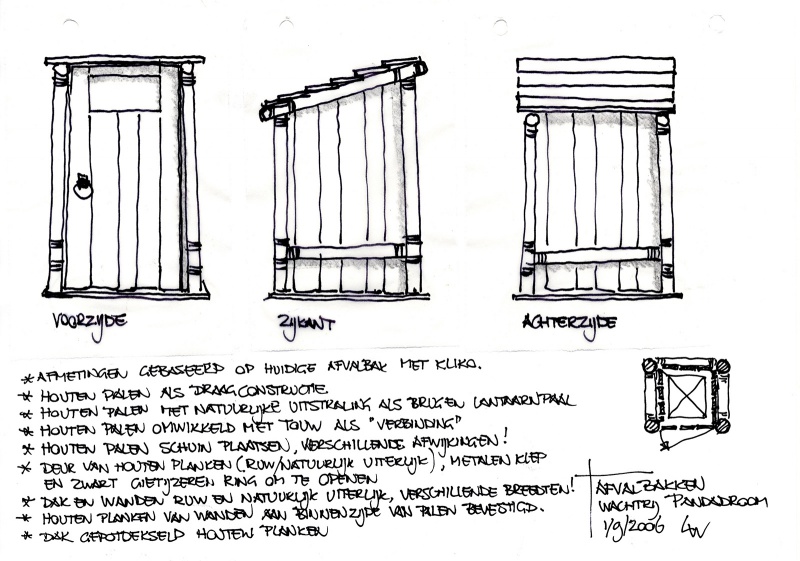 VOORZIJDE
ZIJKANT
ACHTERZIJDE
* AFMETINGEN GEBASEERD OP HUIDIGE AFVALBAK MET KLIKO.
* HOUTEN PALEN ALS DRAAGCONSTRUCTIE
* HOUTEN PALEN MET NATUURLIJKE UITSTRALING ALS BRUG EN LANTAARNPAAL
* HOUTEN PALEN OMWIKKELD MET TOUW ALS "VERBINDING"
* HOUTEN PALEN SCHUIN PLAATSEN, VERSCHILLENDE AFWIJKINGEN!
* DEUR VAN HOUTEN PLANKEN (RUW/NATUURLIJK UITERLIJK), METALEN KLEP
EN ZWART GIETIJZEREN RING OM TE OPENEN
* DAK EN WANDEN RUW EN NATUURLIJK UITERLIJK, VERSCHILLENDE BREEDTEN!
* HOUTEN PLANKEN VAN WANDEN AAN BINNENZIJDE VAN PALEN BEVESTIGD.
* DAK GEPOTDEKSELD HOUTEN PLANKEN
AFVALBAKKEN
WACHTRIJ PANDADROOM
1/9/2006